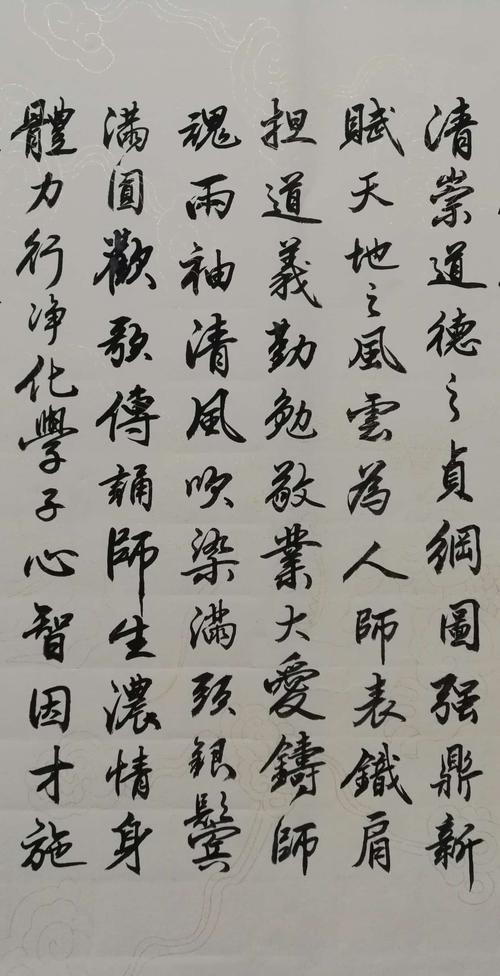 清崇道德之貞綱圖强鼎新
賦天地之風雲為人師表鐵肩
担道義勤勉敬業大愛鑄師
魂兩袖清風吹染滿頭銀鬓
滿園歡歌傳誦師生濃情身
體力行净化學子心智因才施